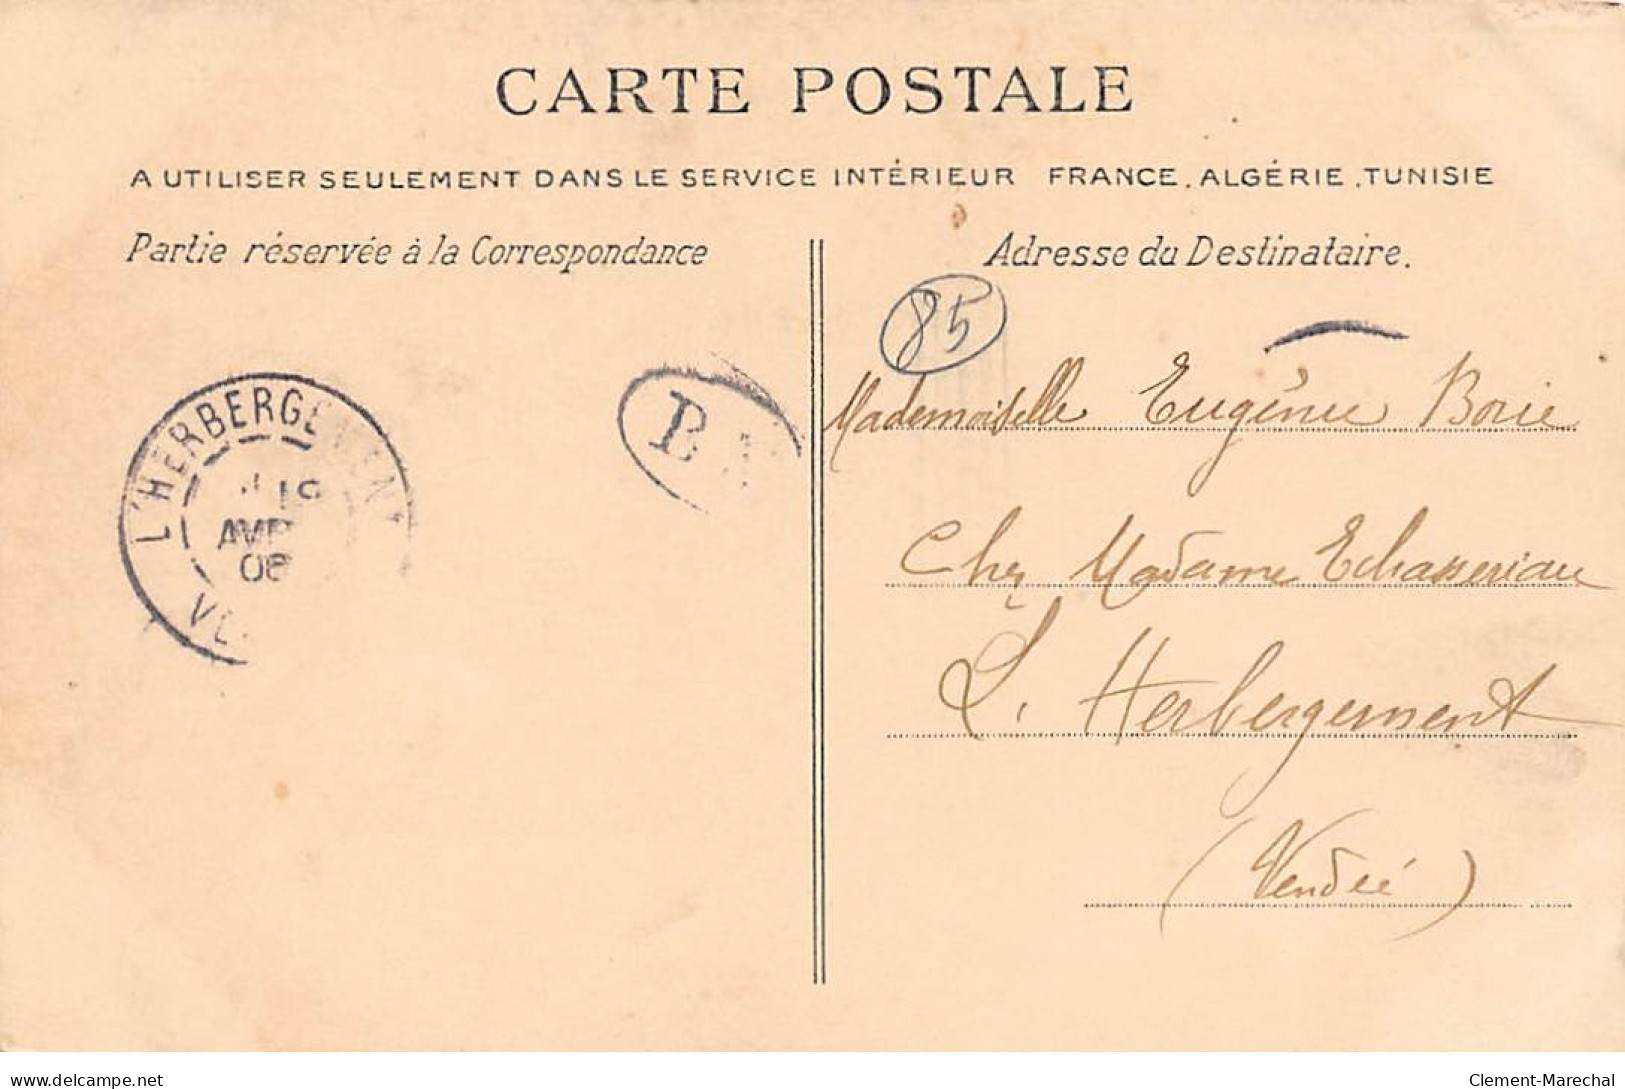 CARTE POSTALE
A UTILISER SEULEMENT DANS LE SERVICE INTÉRIEUR FRANCE. ALGÉRIE. TUNISIE
Partie réservée à la Correspondance
Adresse du Destinataire.
85
L'HERBERGEMENT
B
Mademoiselle Eugénie Borie
Chez Madame Echasseriau
L'Herbergement
(Vendée)
delcampe.net
Clement-Marechal